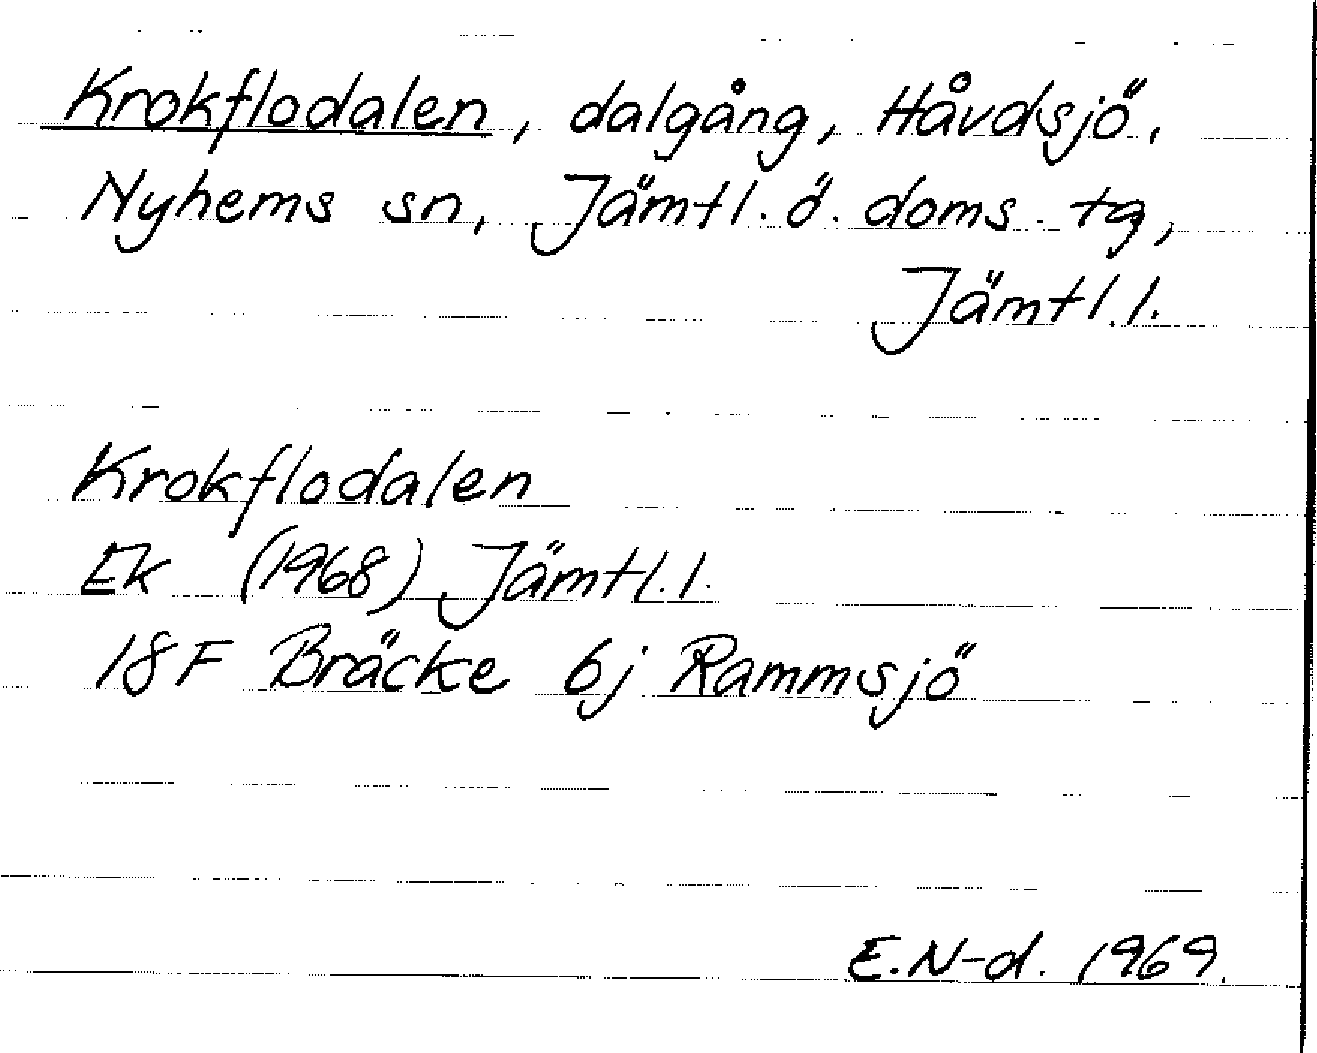 Krokflodalen, dalgång, Håvdsjö,
Nyhems sn, Jämtl. ö. doms. tg,
Jämtl. l.
Krokflodalen
Ek (1968) Jämtl. l.
18F Bräcke 6j Rammsjö
E.N-d. 1969.